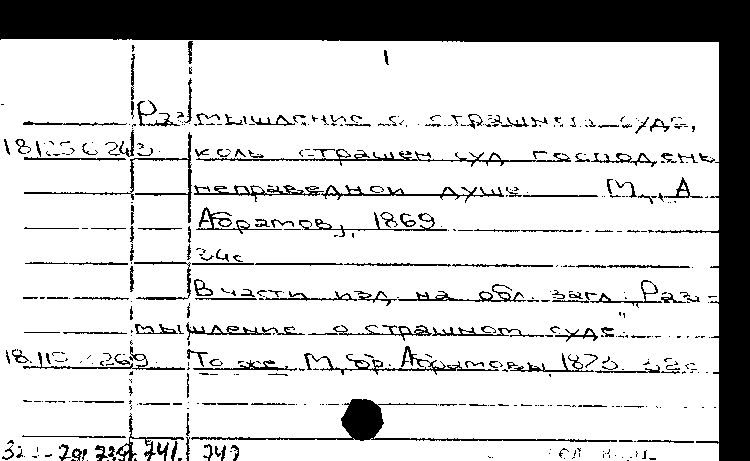 1
Размышление о страшном суде,
коль страшен суд господень
неправедной душе. М., А.
Абрамов, 1869.
34с.
В части изд. на обл. загл.: "Раз=
мышление о страшном суде"
То же. М., бр. Абрамовы, 1873. 32с.
741. 742